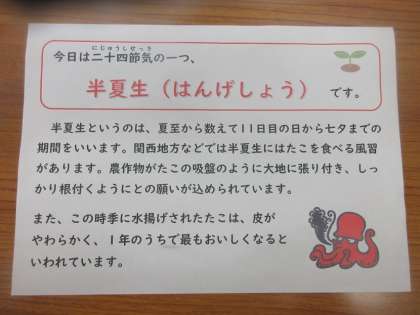 今日は二十四節気の一つ、
にじゅうしせっき
半夏生（はんげしょう） です。
半夏生というのは、夏至から数えて11日目の日から七夕までの
期間をいいます。関西地方などでは半夏生にはたこを食べる風習
があります。農作物がたこの吸盤のように大地に張り付き、しっ
かり根付くようにとの願いが込められています。
また、この時季に水揚げされたたこは、皮が
やわらかく、１年のうちで最もおいしくなると
いわれています。